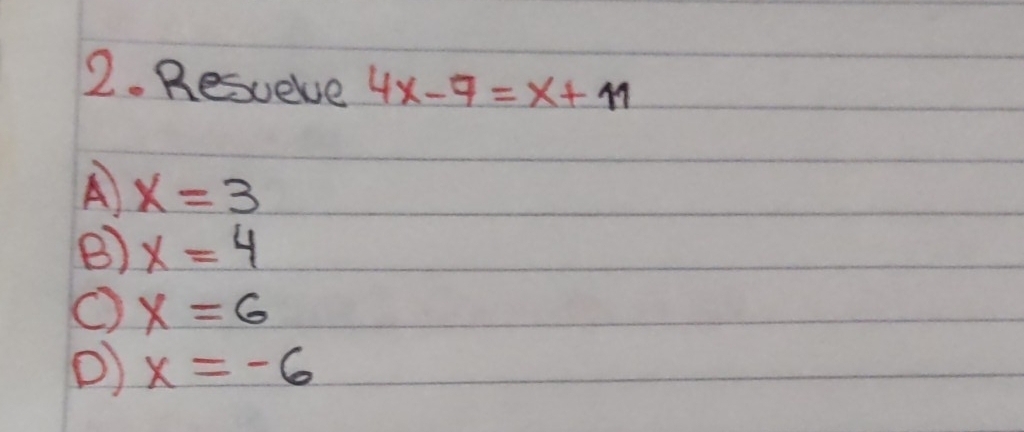 2. Resuelve 4x-7=x+11
A) x = 3
B) x = 4
C) x = 6
D) x = -6